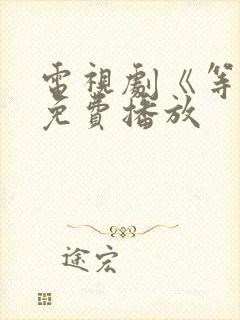 電視劇《等
免費播放
途宏